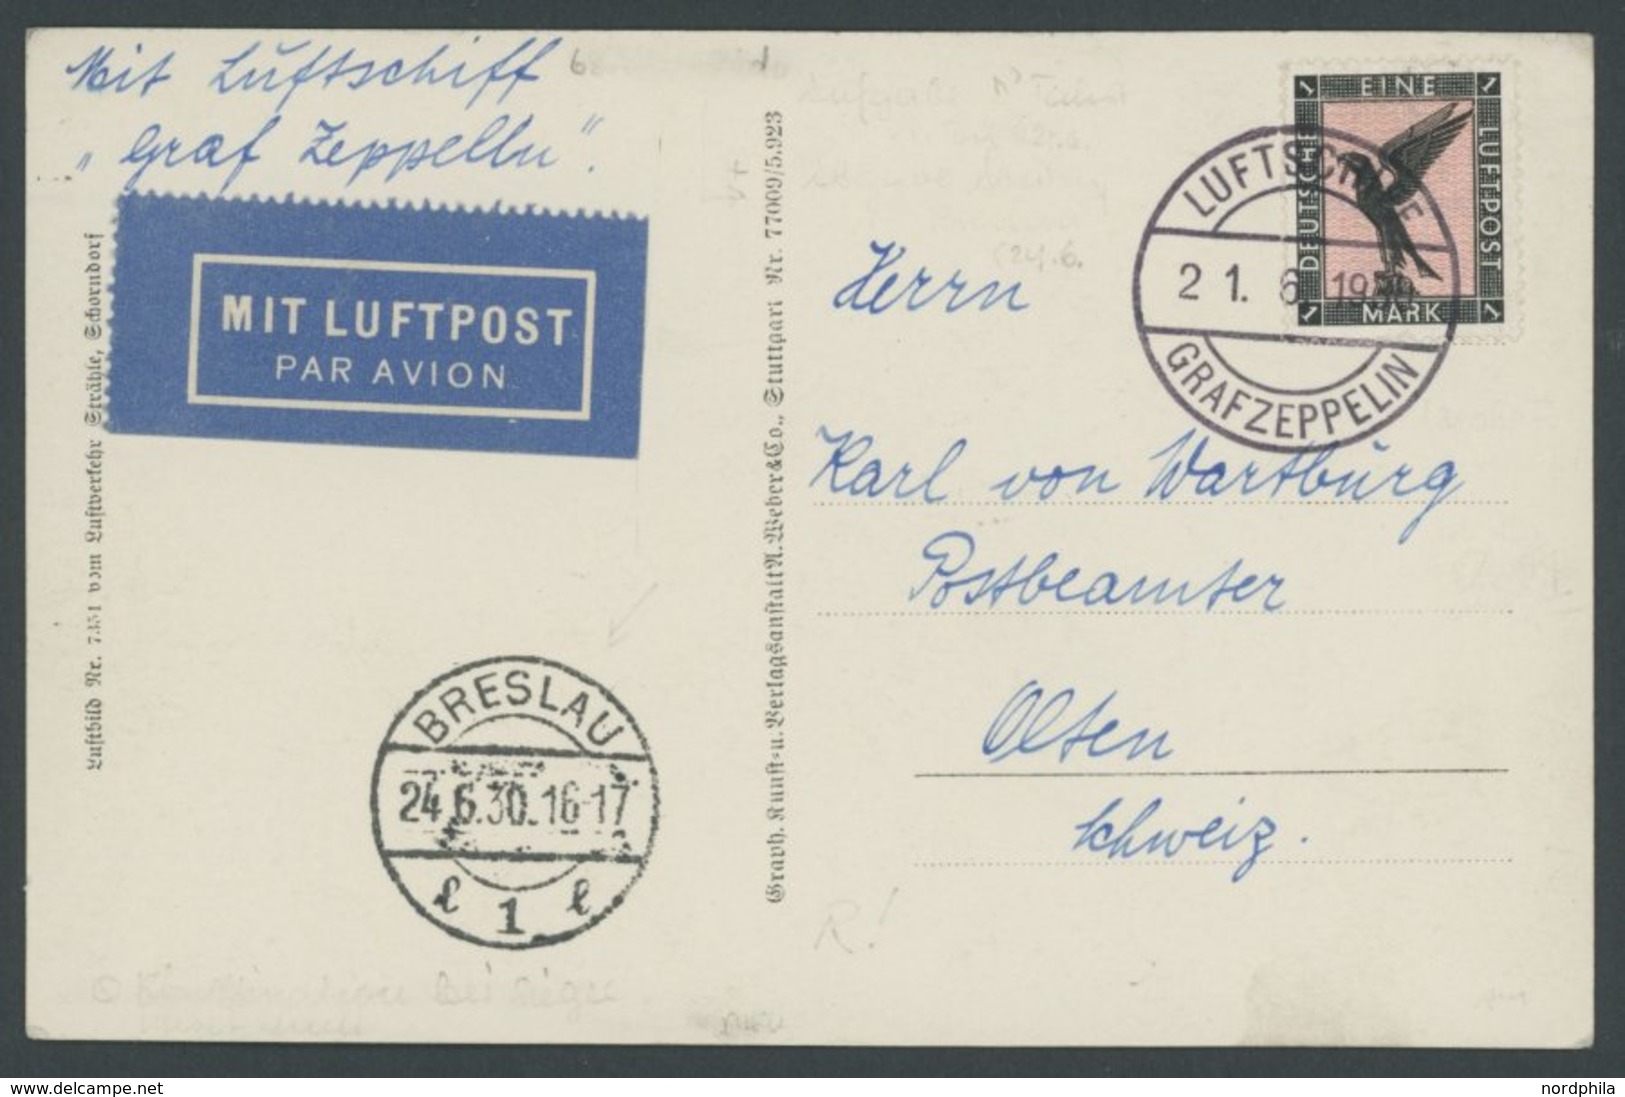 Mit Luftschiff
„Graf Zeppelin“.
MIT LUFTPOST
PAR AVION
Luftbild Nr. 7451 vom Luftverkehr Strähle, Schorndorf
BRESLAU
24.6.30.16-17
l 1 l
Graph. Kunst- u. Verlagsanstalt A. Weber & Co., Stuttgart Nr. 77009/5.923
(24.6.
EINE
DEUTSCHE
LUFTPOST
1 MARK 1
LUFTSCHIFF
21. 6. 1930
GRAF ZEPPELIN
Herrn
Karl von Wartburg
Postbeamter
Olten
Schweiz.
R!
nordphila